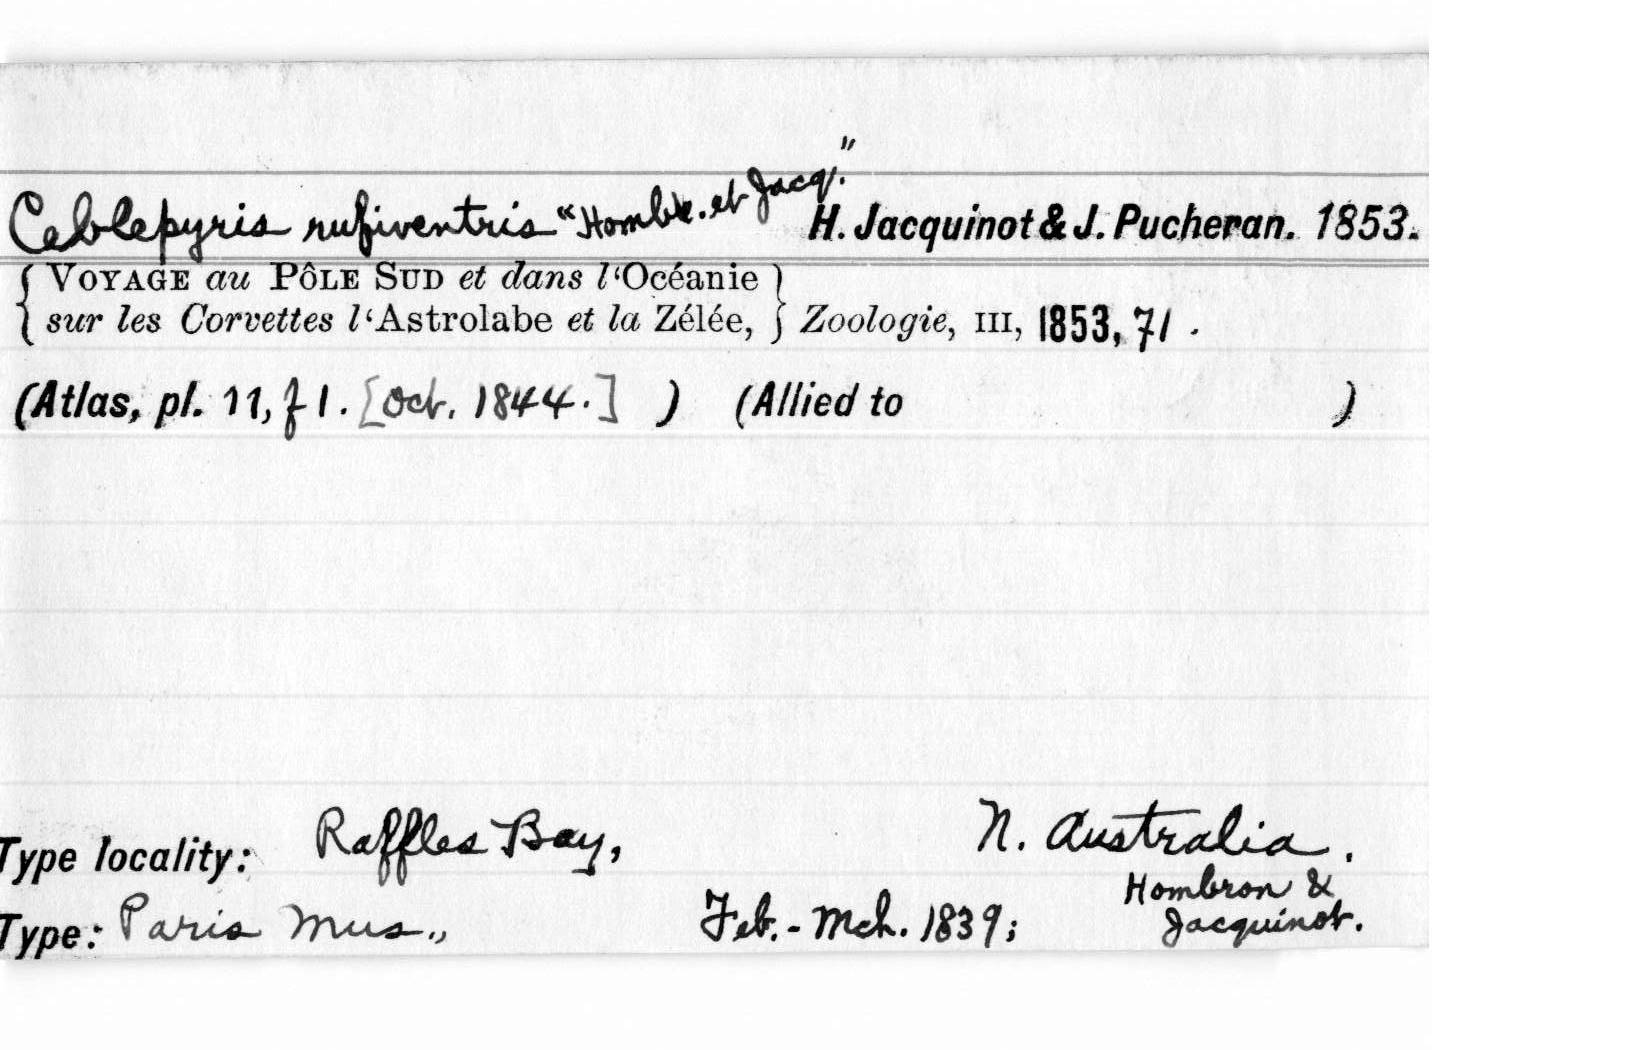 Ceblepyris rufiventris “Hombr. et Jacq.” H. Jacquinot & J. Pucheran. 1853.
{ VOYAGE au PôLE SUD et dans l‘Océanie }
{ sur les Corvettes l‘Astrolabe et la Zélée, } Zoologie, III, 1853, 71 .
(Atlas, pl. 11, f 1. [Oct. 1844.] ) (Allied to )
Type locality: Raffles Bay, N. Australia .
Type: Paris Mus., Feb. - Mch. 1839; Hombron &
Jacquinot.